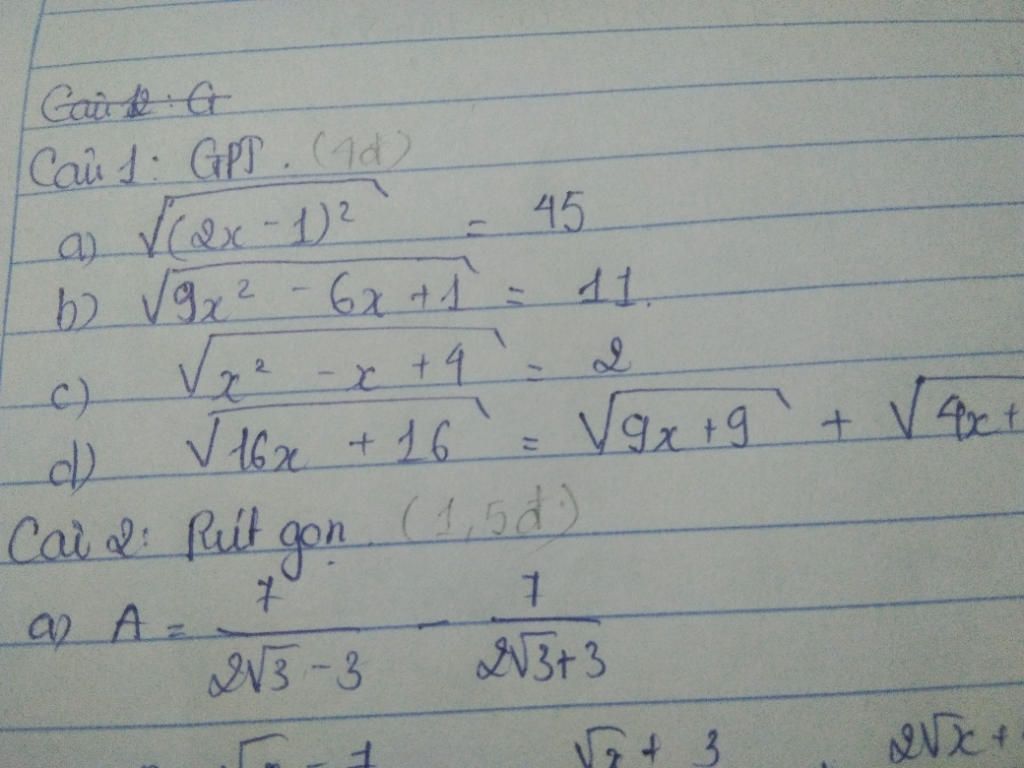 Câu 1: GPT. (4đ)
a) √(2x - 1)² = 45
b) √9x² - 6x + 1 = 11.
c) √x² - x + 4 = 2
d) √16x + 16 = √9x + 9 + √4x +
Câu 2: Rút gọn. (1,5đ)
a) A = 7/(2√3 - 3) - 7/(2√3 + 3)
√x + 3 2√x +